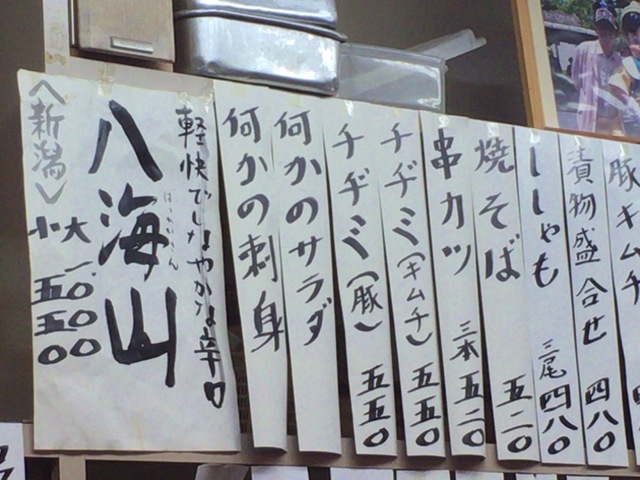 豚キムチ
漬物盛合せ 四八〇
ししゃも 三尾 四八〇
焼そば 五二〇
串カツ 三本 五二〇
チヂミ(キムチ) 五五〇
チヂミ(豚) 五五〇
何かのサラダ
何かの刺身
軽快でしなやかな辛口
はっかいさん
八海山
大 一.〇〇〇
小 五五〇
〈新潟〉